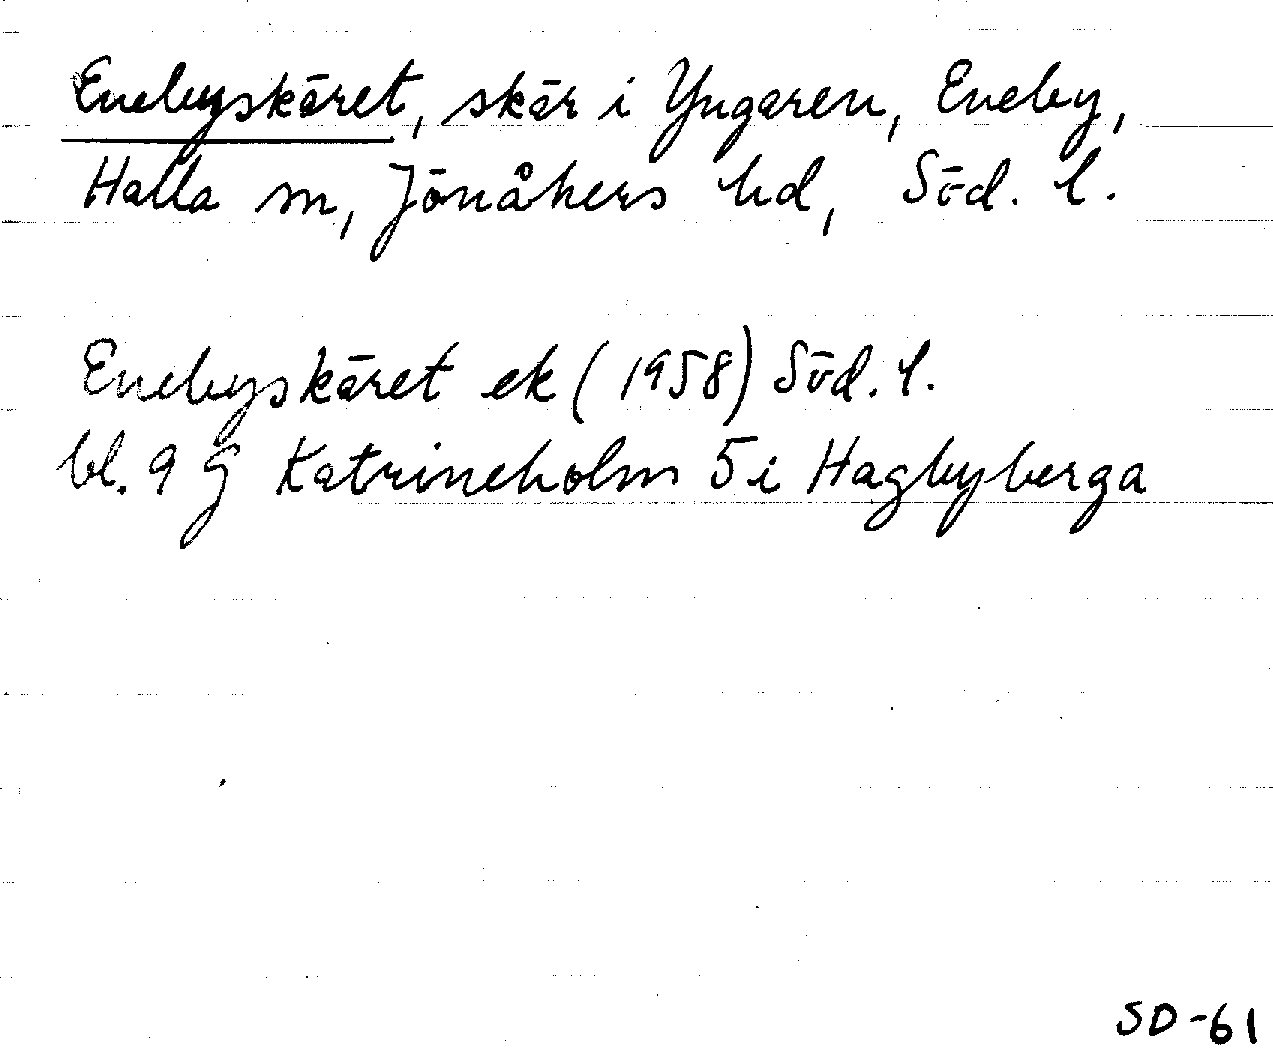 Enebyskäret, skär i Yngaren, Eneby,
Halla sn, Jönåkers hd, Söd. l.
Enebyskäret ek (1958) Söd. l.
bl. 9 G Katrineholm 5 i Hagbyberga
SD-61